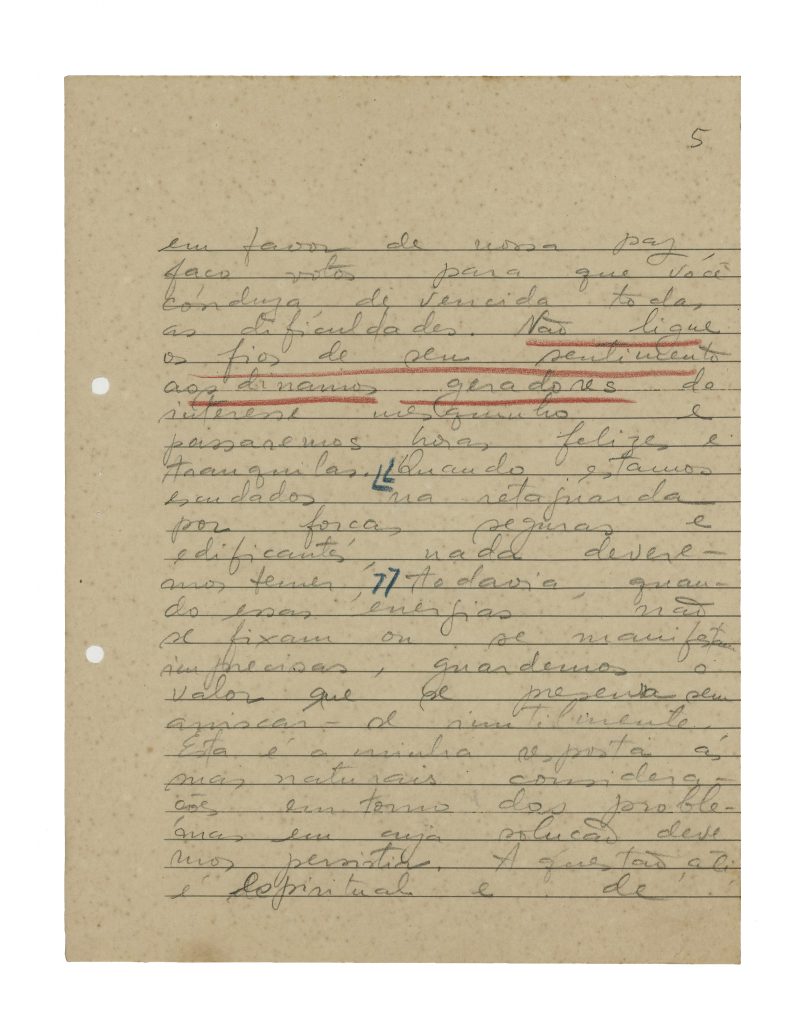 5
em favor de nossa paz
faço votos para que você
conduza de vencida todas
as dificuldades. Não ligue
os fios de seu sentimento
aos dinamos geradores do
interesse mesquinho e
passaremos horas felizes e
tranquilas. "Quando estamos
escudados na retaguarda
por forças seguras e
edificantes, nada devere-
mos temer," todavia, quan-
do essas energias não
se fixam ou se manifestam
imprecisas, guardemos o
valor que se preserva sem
arriscar-se inutilmente.
Esta é a minha resposta ás
mas naturais considera-
ções em torno dos proble-
mas em cuja solução deve
mos persistir. A questão, ali
é espiritual e de